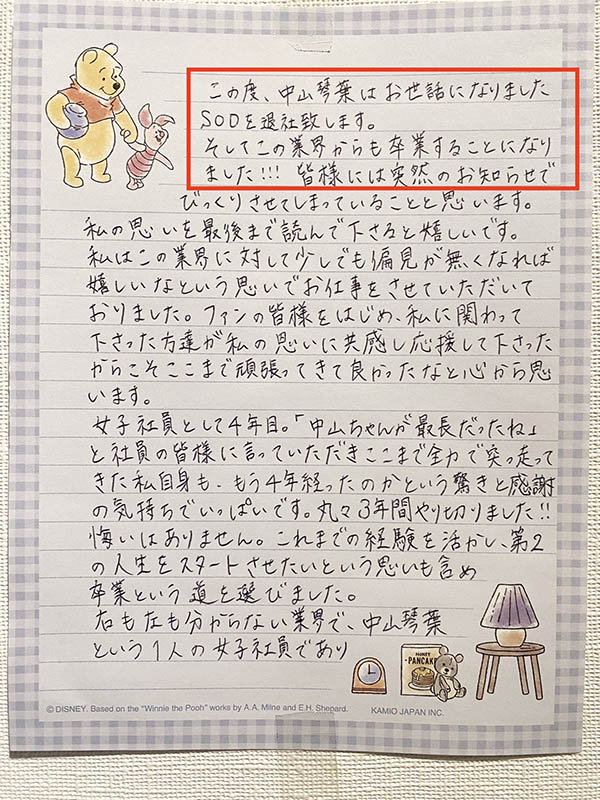 この度、中山琴葉はお世話になりました
SODを退社致します。
そしてこの業界からも卒業することになり
ました!!! 皆様には突然のお知らせで
びっくりさせてしまっていることと思います。
私の思いを最後まで読んで下さると嬉しいです。
私はこの業界に対して少しでも偏見が無くなれば
嬉しいなという思いでお仕事をさせていただいて
おりました。ファンの皆様をはじめ、私に関わって
下さった方達が私の思いに共感し応援して下さった
からこそここまで頑張ってきて良かったなと心から思
います。
女子社員として4年目。「中山ちゃんが最長だったね」
と社員の皆様に言っていただきここまで全力で突っ走って
きた私自身も、もう4年経ったのかという驚きと感謝
の気持ちでいっぱいです。丸々3年間やり切りました!!
悔いはありません。これまでの経験を活かし、第2
の人生をスタートさせたいという思いも含め
卒業という道を選びました。
右も左も分からない業界で、中山琴葉
という1人の女子社員であり
HONEY
PANCAKE
© DISNEY. Based on the "Winnie the Pooh" works by A.A. Milne and E.H. Shepard. KAMIO JAPAN INC.